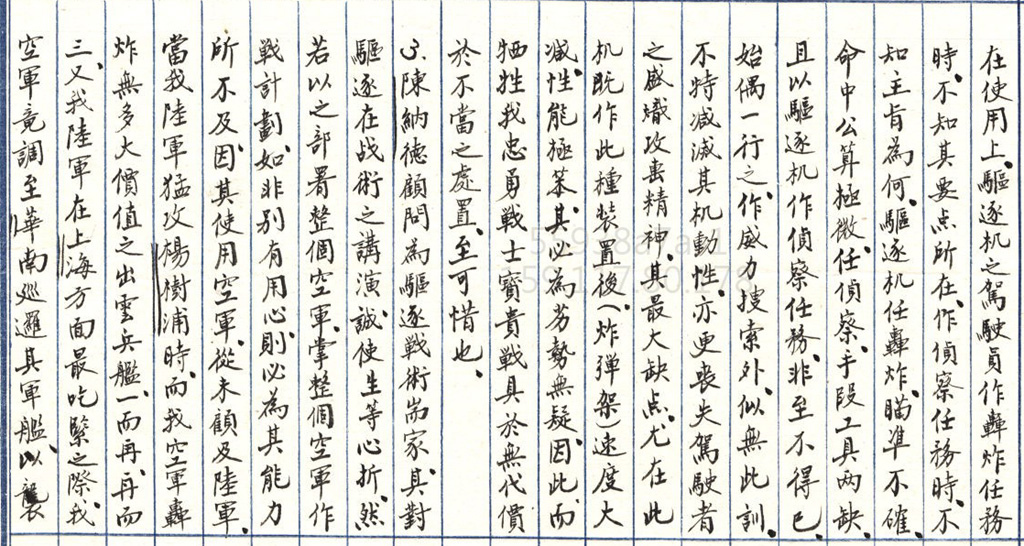 在使用上、驅逐机之駕駛員作轟炸任務
時、不知其要点所在、作偵察任務時、不
知主旨為何、驅逐机任轟炸、瞄準不確、
命中公算極微、任偵察、手段工具两缺、
且以驅逐机作偵察任務、非至不得已、
始偶一行之、作威力搜索外、似無此訓、
不特減滅其机動性、亦更喪失駕駛者
之盛熾攻击精神、其最大缺点、尤在此
机既作此種装置後、(炸弹架)速度大
减、性能極笨、其必為劣勢無疑、因此、而
牺牲我忠勇戦士寳貴戦具於無代價
於不當之處置、至可惜也、
3、陳納德顧問為驅逐戰術耑家、其對
驅逐在战術之講演、誠使生等心折、然
若以之部署整個空軍、掌整個空軍作
戰計劃、如非別有用心、則必為其能力
所不及、因其使用空軍、從未顧及陸軍、
當我陸軍猛攻楊樹浦時、而我空軍轟
炸無多大價值之出雲兵艦、一而再、再而
三、又我陸軍在上海方面最吃緊之際、我
空軍竟調至華南巡邏其軍艦、以襲